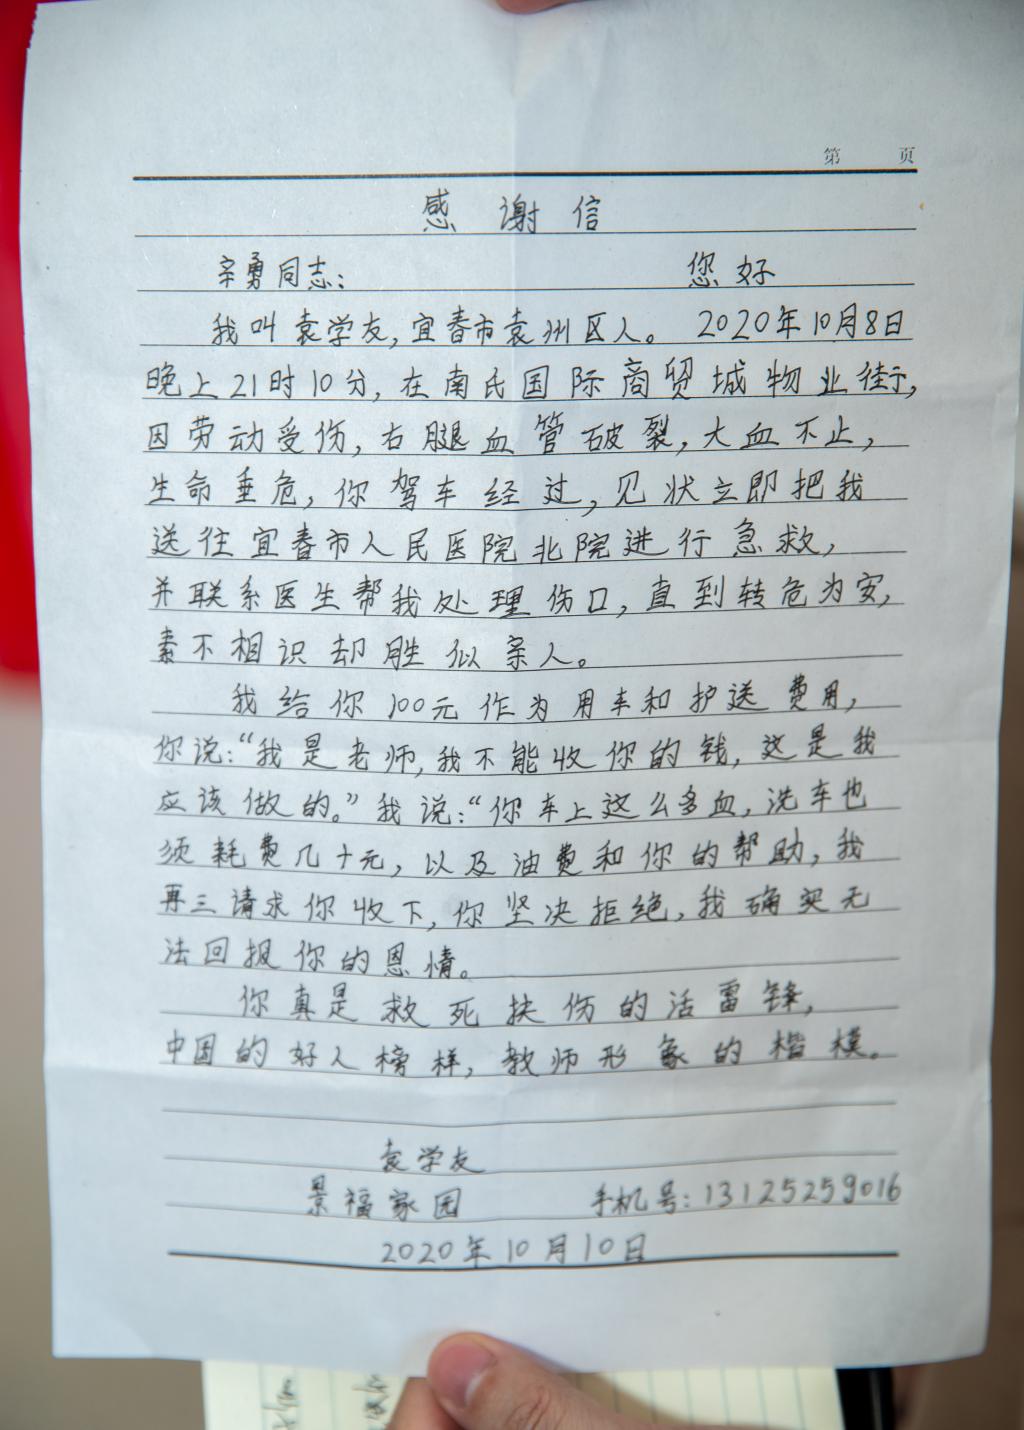 第 页
感谢信
辛勇同志： 您好
我叫袁学友，宜春市袁州区人。 2020年10月8日
晚上21时10分，在南氏国际商贸城物业街，
因劳动受伤，右腿血管破裂，大血不止，
生命垂危，你驾车经过，见状立即把我
送往宜春市人民医院北院进行急救，
并联系医生帮我处理伤口，直到转危为安，
素不相识却胜似亲人。
我给你100元作为用车和护送费用，
你说：“我是老师，我不能收你的钱，这是我
应该做的。”我说：“你车上这么多血，洗车也
须耗费几十元，以及油费和你的帮助，我
再三请求你收下，你坚决拒绝，我确实无
法回报你的恩情。
你真是救死扶伤的活雷锋，
中国的好人榜样，教师形象的楷模。
袁学友
景福家园 手机号：13125259016
2020年10月10日